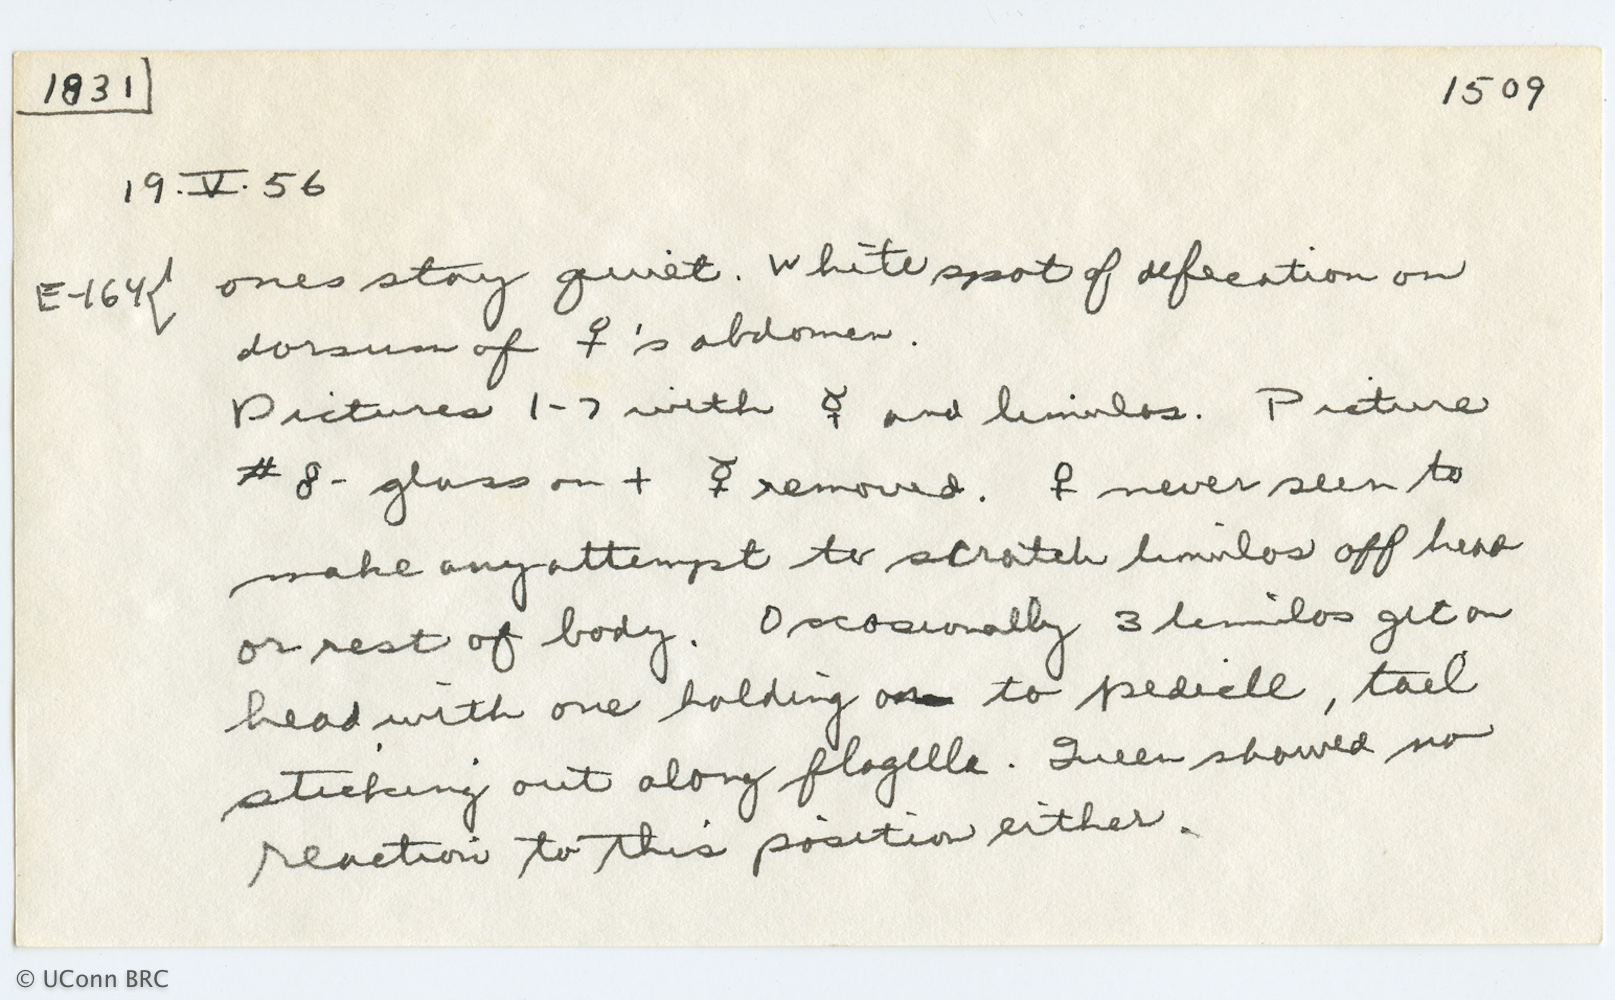 1831
1509
19.V.56
E-164{ ones stay quiet. White spot of defecation on
dorsum of ♀'s abdomen.
Pictures 1-7 with ☿ and limulos. Picture
#8- glass on + ☿ removed. ♀ never seen to
make any attempt to scratch limulos off head
or rest of body. Occasionally 3 limulos get on
head with one holding on to pedicell, tail
sticking out along flagella. Queen showed no
reaction to this position either.
© UConn BRC